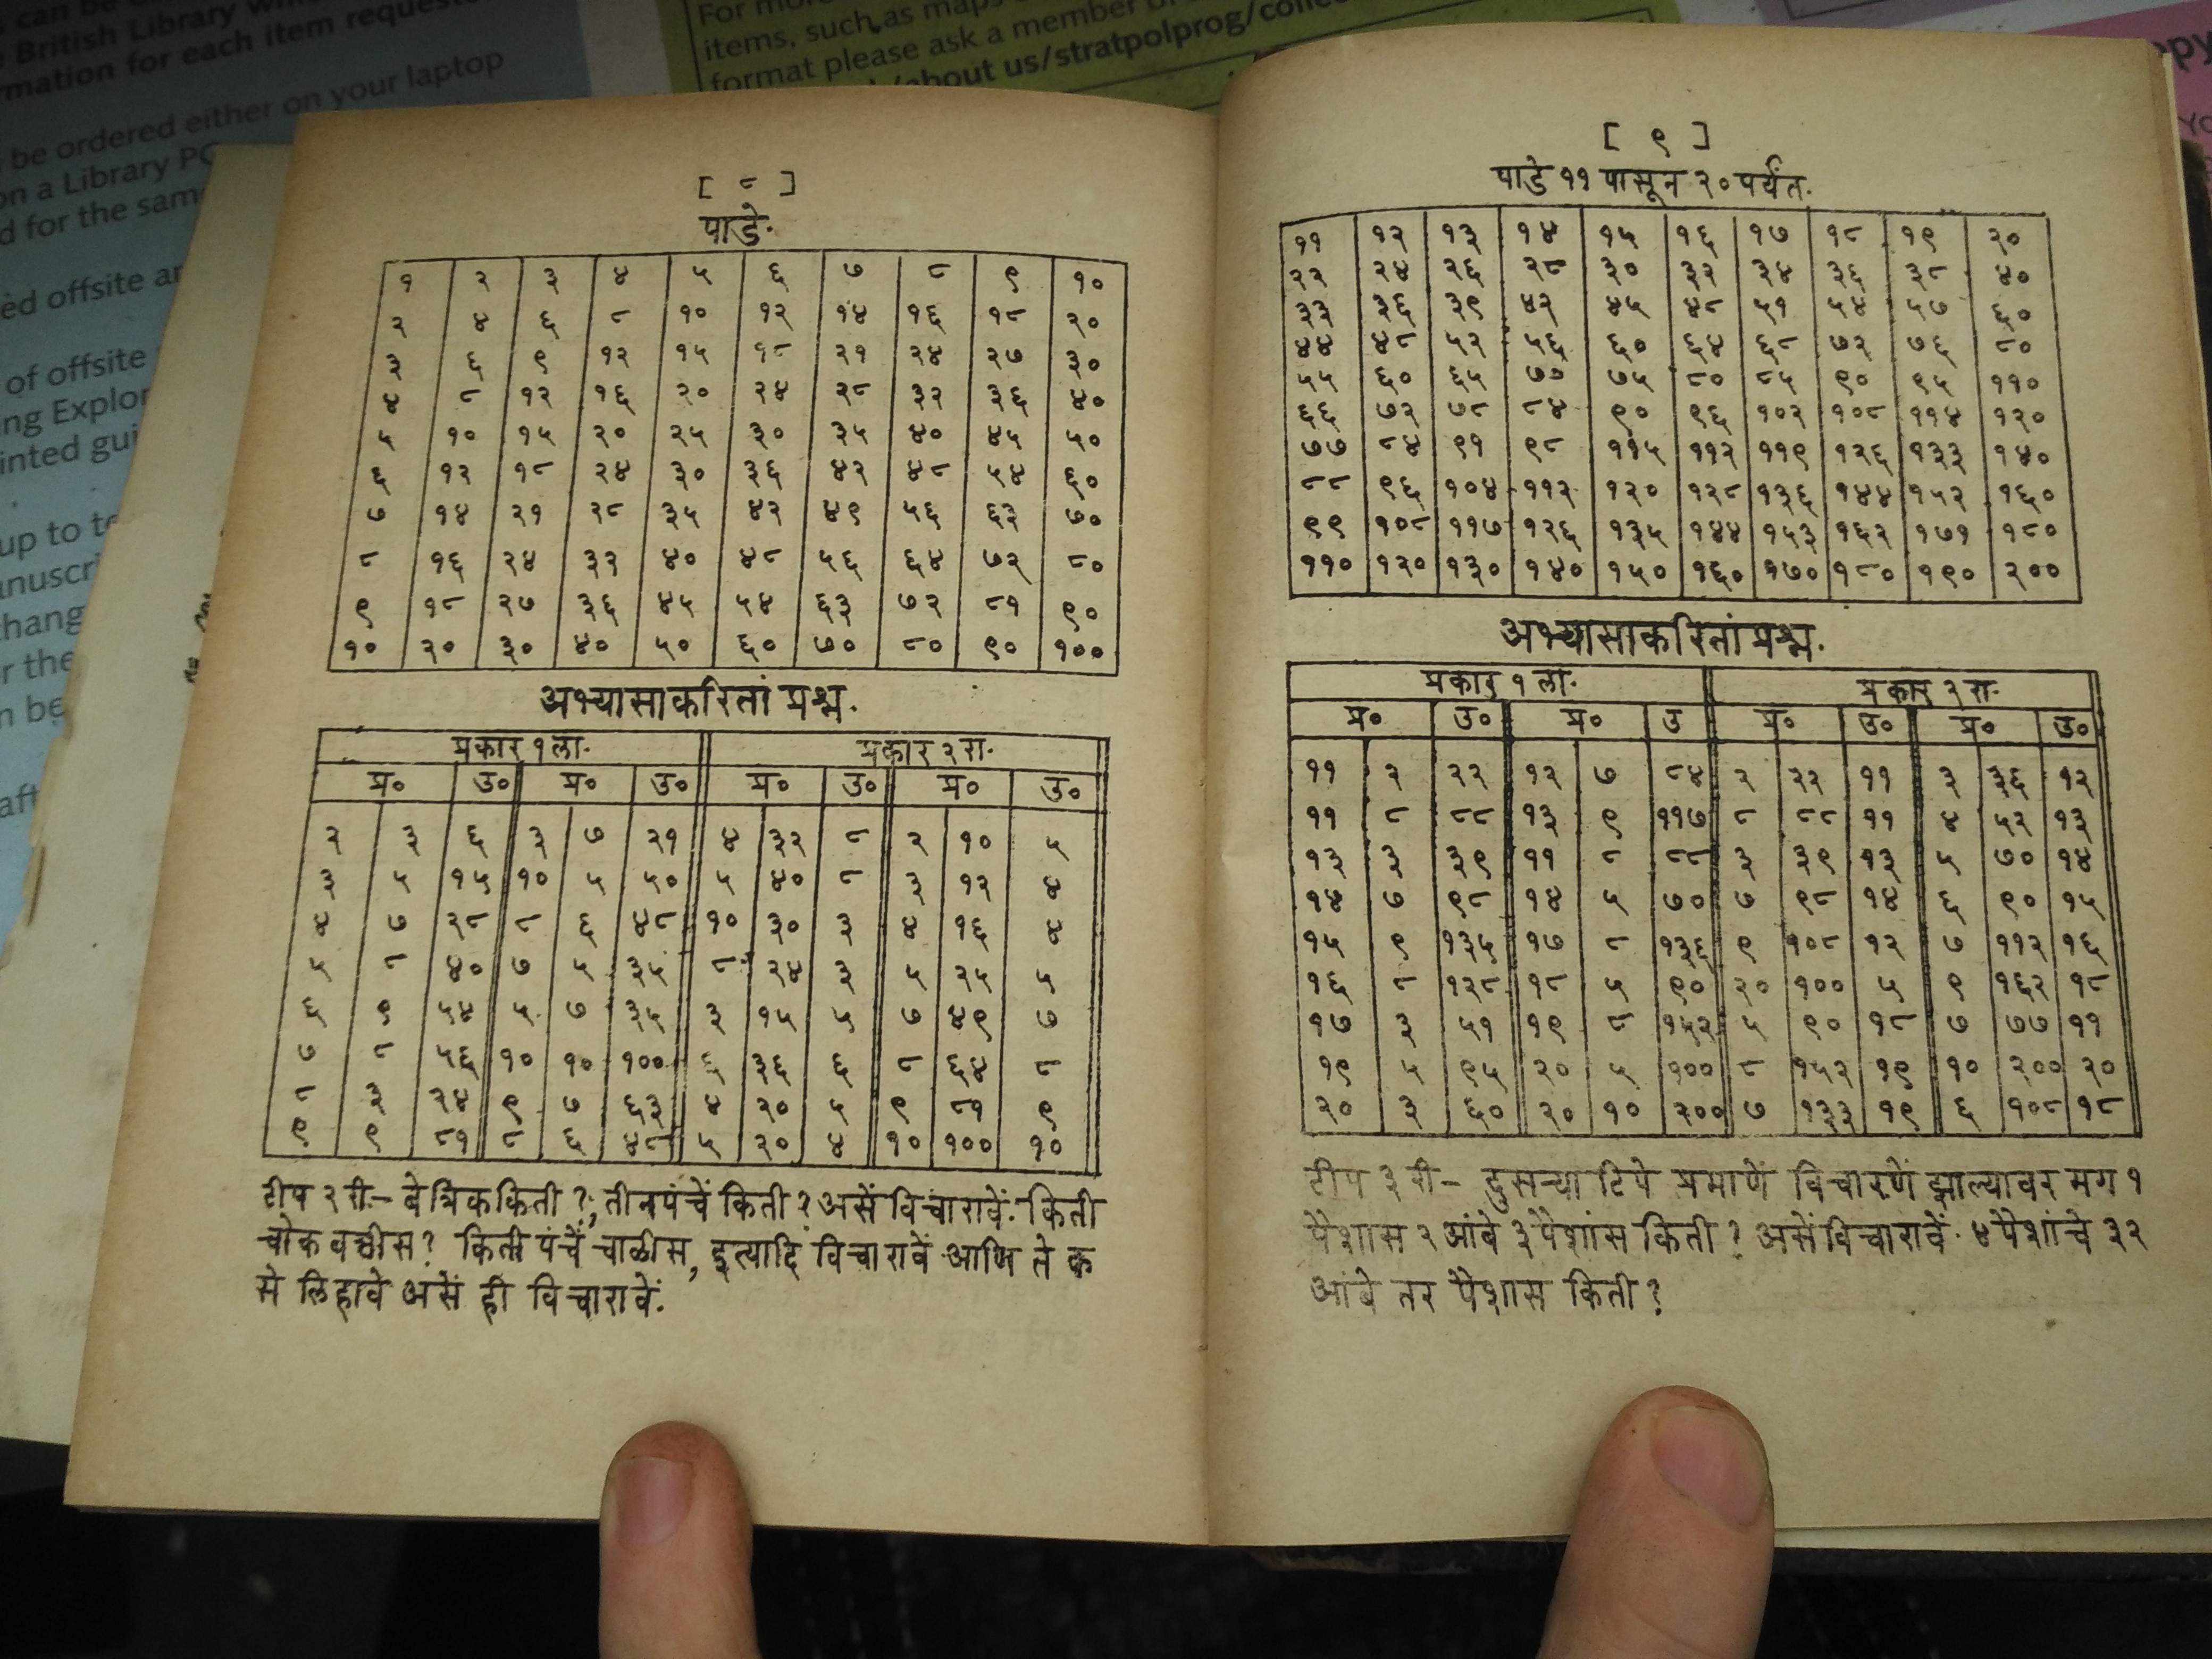 can be
British Library
mation for each item
be ordered either on your laptop
on a Library PC
d for the same
offsite
of offsite
up to
items, such as maps
format please ask a member of
/about us/stratpolprog/
[ ८ ]
पाडे.
१ २ ३ ४ ५ ६ ७ ८ ९ १०
२ ४ ६ ८ १० १२ १४ १६ १८ २०
३ ६ ९ १२ १५ १८ २१ २४ २७ ३०
४ ८ १२ १६ २० २४ २८ ३२ ३६ ४०
५ १० १५ २० २५ ३० ३५ ४० ४५ ५०
६ १२ १८ २४ ३० ३६ ४२ ४८ ५४ ६०
७ १४ २१ २८ ३५ ४२ ४९ ५६ ६३ ७०
८ १६ २४ ३२ ४० ४८ ५६ ६४ ७२ ८०
९ १८ २७ ३६ ४५ ५४ ६३ ७२ ८१ ९०
१० २० ३० ४० ५० ६० ७० ८० ९० १००
अभ्यासाकरितां प्रश्न.
प्रकार १ ला. प्रकार २ रा.
प्र० उ० प्र० उ० प्र० उ० प्र० उ०
२ ३ ६ ३ ७ २१ ४ ३२ ८ २ १० ५
३ ५ १५ १० ५ ५० ५ ४० ८ ३ १२ ४
४ ७ २८ ८ ६ ४८ १० ३० ३ ४ १६ ४
५ ८ ४० ७ ५ ३५ ८ २४ ३ ५ २५ ५
६ ९ ५४ ५ ७ ३५ ३ १५ ५ ७ ४९ ७
७ ८ ५६ १० १० १०० ६ ३६ ६ ८ ६४ ८
८ ३ २४ ९ ७ ६३ ४ २० ५ ९ ८१ ९
९ ९ ८१ ८ ६ ४८ ५ २० ४ १० १०० १०
टीप २ री.— बे त्रिक किती ?, तीन पंचें किती ? असें विचारावें. किती
चोक बत्तीस ? किती पंचें चाळीस, इत्यादि विचारावें आणि ते क
से लिहावे असें ही विचारावें.
[ ९ ]
पाडे ११ पासून २० पर्यंत.
११ १२ १३ १४ १५ १६ १७ १८ १९ २०
२२ २४ २६ २८ ३० ३२ ३४ ३६ ३८ ४०
३३ ३६ ३९ ४२ ४५ ४८ ५१ ५४ ५७ ६०
४४ ४८ ५२ ५६ ६० ६४ ६८ ७२ ७६ ८०
५५ ६० ६५ ७० ७५ ८० ८५ ९० ९५ ११०
६६ ७२ ७८ ८४ ९० ९६ १०२ १०८ ११४ १२०
७७ ८४ ९१ ९८ ११५ ११२ ११९ १२६ १३३ १४०
८८ ९६ १०४ ११२ १२० १२८ १३६ १४४ १५२ १६०
९९ १०८ ११७ १२६ १३५ १४४ १५३ १६२ १७१ १८०
११० १२० १३० १४० १५० १६० १७० १८० १९० २००
अभ्यासाकरितां प्रश्न.
प्रकार १ ला. प्रकार २ रा.
प्र० उ० प्र० उ प्र० उ० प्र० उ०
११ २ २२ १२ ७ ८४ २ २२ ११ ३ ३६ १२
११ ८ ८८ १३ ९ ११७ ८ ८८ ११ ४ ५२ १३
१३ ३ ३९ ११ ८ ८८ ३ ३९ १३ ५ ७० १४
१४ ७ ९८ १४ ५ ७० ७ ९८ १४ ६ ९० १५
१५ ९ १३५ १७ ८ १३६ ९ १०८ १२ ७ ११२ १६
१६ ८ १२८ १८ ५ ९० २० १०० ५ ९ १६२ १८
१७ ३ ५१ १९ ८ १५२ ५ ९० १८ ७ ७७ ११
१९ ५ ९५ २० ५ १०० ८ १५२ १९ १० २०० २०
२० ३ ६० २० १० २०० ७ १३३ १९ ६ १०८ १८
टीप ३ री— दुसऱ्या टिपे प्रमाणें विचारणें झाल्यावर मग १
पैशास २ आंबे ३ पैशांस किती ? असें विचारावें. ४ पैशांचे ३२
आंबे तर पैशास किती ?